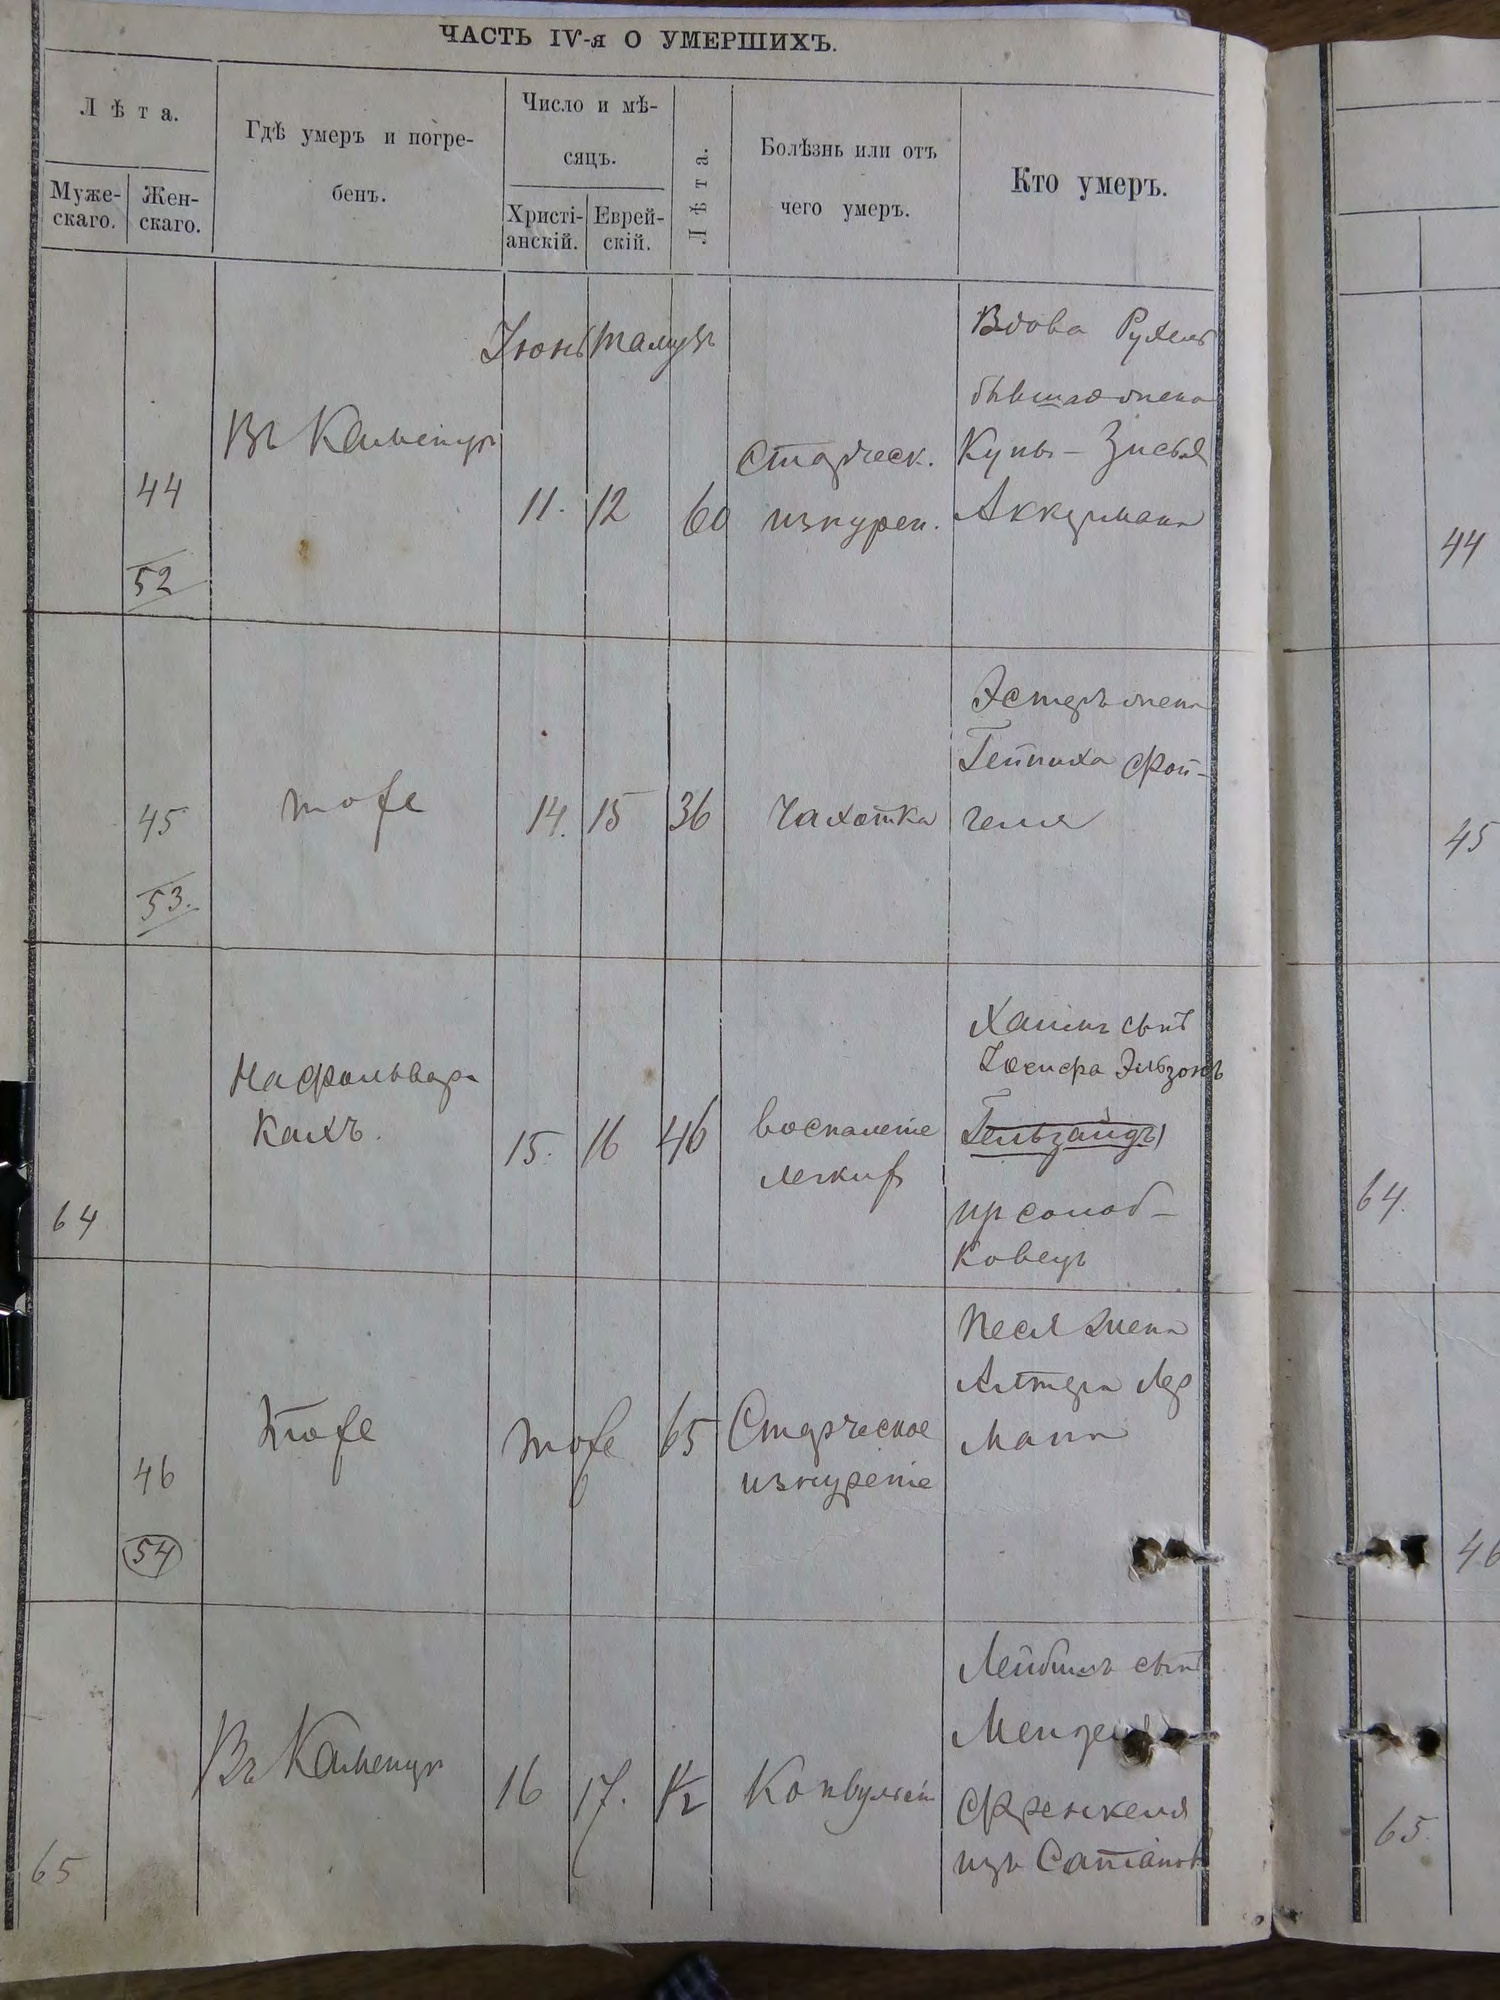 ЧАСТЬ IV-я О УМЕРШИХЪ.
Лѣта.
Муже-
скаго.
Жен-
скаго.
Гдѣ умеръ и погре-
бенъ.
Число и мѣ-
сяцъ.
Христі-
анскій.
Еврей-
скій.
Лѣта.
Болѣзнь или отъ
чего умеръ.
Кто умеръ.
Іюнь Тамузъ
44
52
Въ Каменцѣ
11. 12 60
Старческ.
изнурен.
Вдова Рухель
бывшая жена
Купы-Зисья
Аккермана
44
45
53.
тоже
14. 15 36
Чахотка
Эстеръ жена
Гейниха Фой-
геля
45
64
На фольвар-
кахъ.
15. 16 46
воспаленіе
легкихъ
Хаимъ сынъ
Іосифа Эльзонъ
Гельзайдъ
изъ солоб-
ковецъ
64.
46
54
тоже
тоже 65
Старческое
изнуреніе
Песя жена
Алтера Лер
мана
46
65
Въ Каменцѣ
16 17. 1/2
Конвульсіи
Лейбишъ сынъ
Френкеля
изъ Сатанов
65.